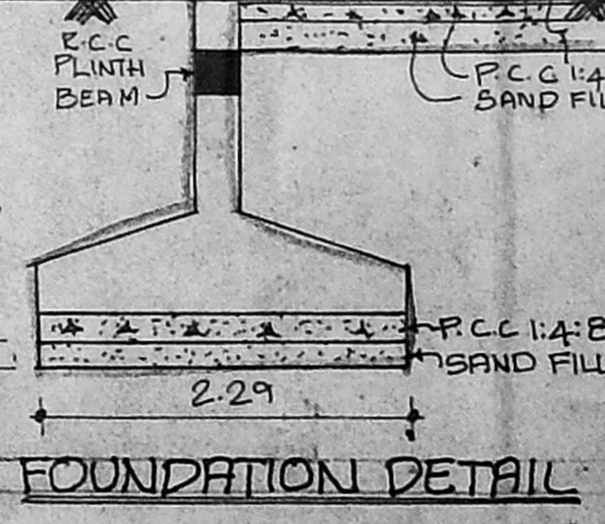 R.C.C
PLINTH
BEAM
P.C.C 1:4
SAND FIL
P.C.C 1:4:8
SAND FILL
2.29
FOUNDATION DETAIL